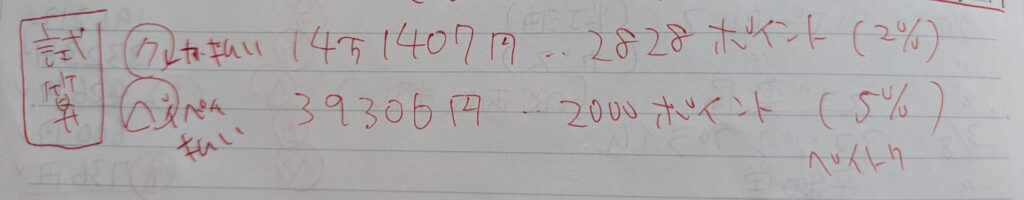 試算
クレカ払い 14万1407円‥2828ポイント(2%)
ペイペイ払い 39306円‥2000ポイント(5%)
ペイトク